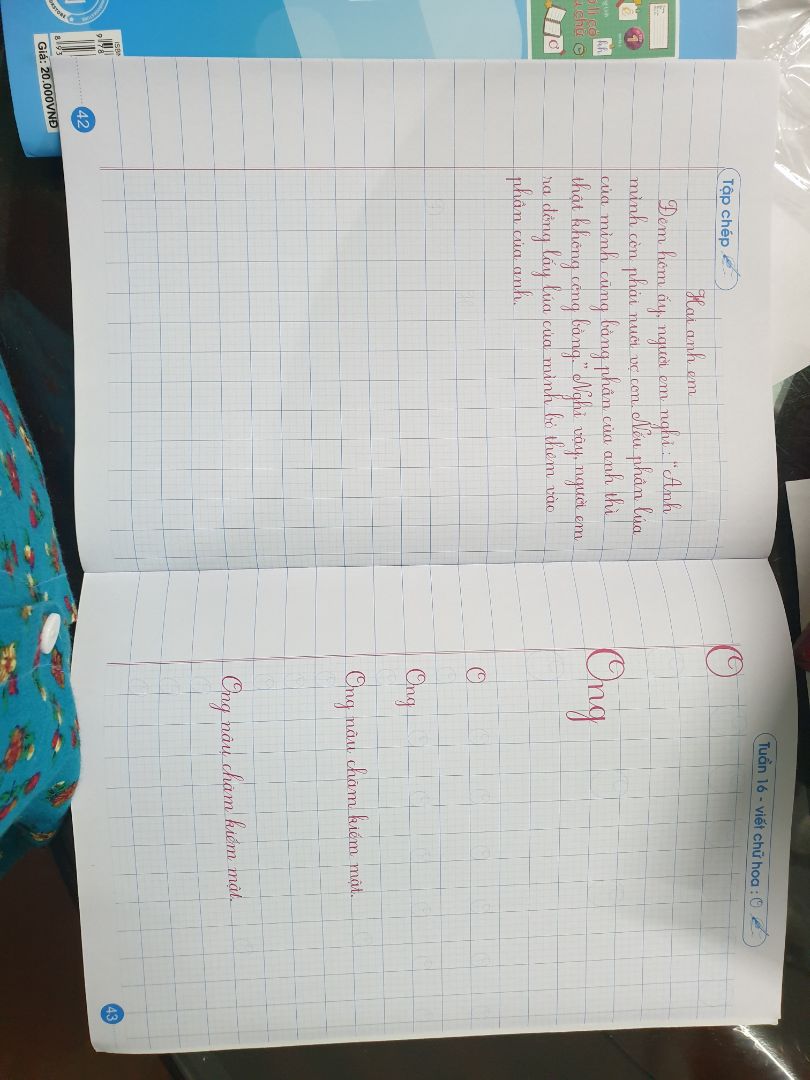 Tập chép
Hai anh em
Đêm hôm ấy, người em nghĩ: "Anh
mình còn phải nuôi vợ con. Nếu phần lúa
của mình cũng bằng phần của anh thì
thật không công bằng." Nghĩ vậy, người em
ra đồng lấy lúa của mình bỏ thêm vào
phần của anh.
42
Tuần 16 - viết chữ hoa: O
O
Ong
O
Ong
Ong nâu chăm kiếm mật.
Ong nâu chăm kiếm mật.
43
Giá: 20.000VNĐ
ISBN